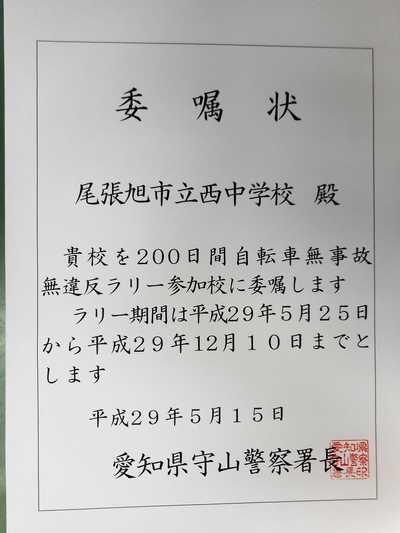 委嘱状
尾張旭市立西中学校 殿
貴校を200日間自転車無事故
無違反ラリー参加校に委嘱します
ラリー期間は平成29年5月25日
から平成29年12月10日までと
します
平成29年5月15日
愛知県守山警察署長